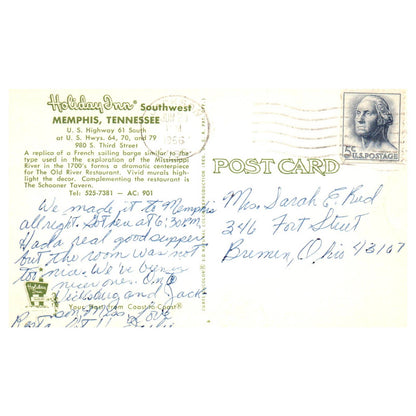 Holiday Inn Southwest
MEMPHIS, TENNESSEE
U. S. Highway 61 South
at U. S. Hwys. 64, 70, and 79
980 S. Third Street
A replica of a French sailing barge similar to the
type used in the exploration of the Mississippi
River in the 1700's forms a dramatic centerpiece
for The Old River Restaurant. Vivid murals high-
light the decor. Complementing the restaurant is
The Schooner Tavern.
Tel: 525-7381 - TC: AC: 901
We made it to Memphis
all right. Got here at 6:30 P.M.
Had a real good supper
but the room was not
too nice. We've been in
nicer ones. On to
Vicksburg and Jack-
son, Miss. Love
Holiday Inn
Your Host from Coast to Coast®
POST CARD
5¢ U.S. POSTAGE
Mrs. Sarah E. Reid
346 Fort Street
Bremen, Ohio 43107